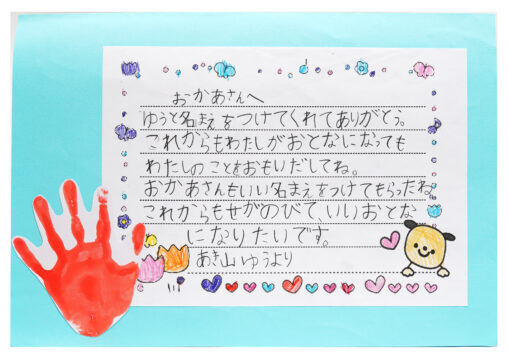 おかあさんへ
ゆうと名まえをつけてくれてありがとう。
これからもわたしがおとなになっても
わたしのことをおもいだしてね。
おかあさんもいい名まえをつけてもらったね
これからもせがのびて、いいおとな
になりたいです。
あき山ゆうより